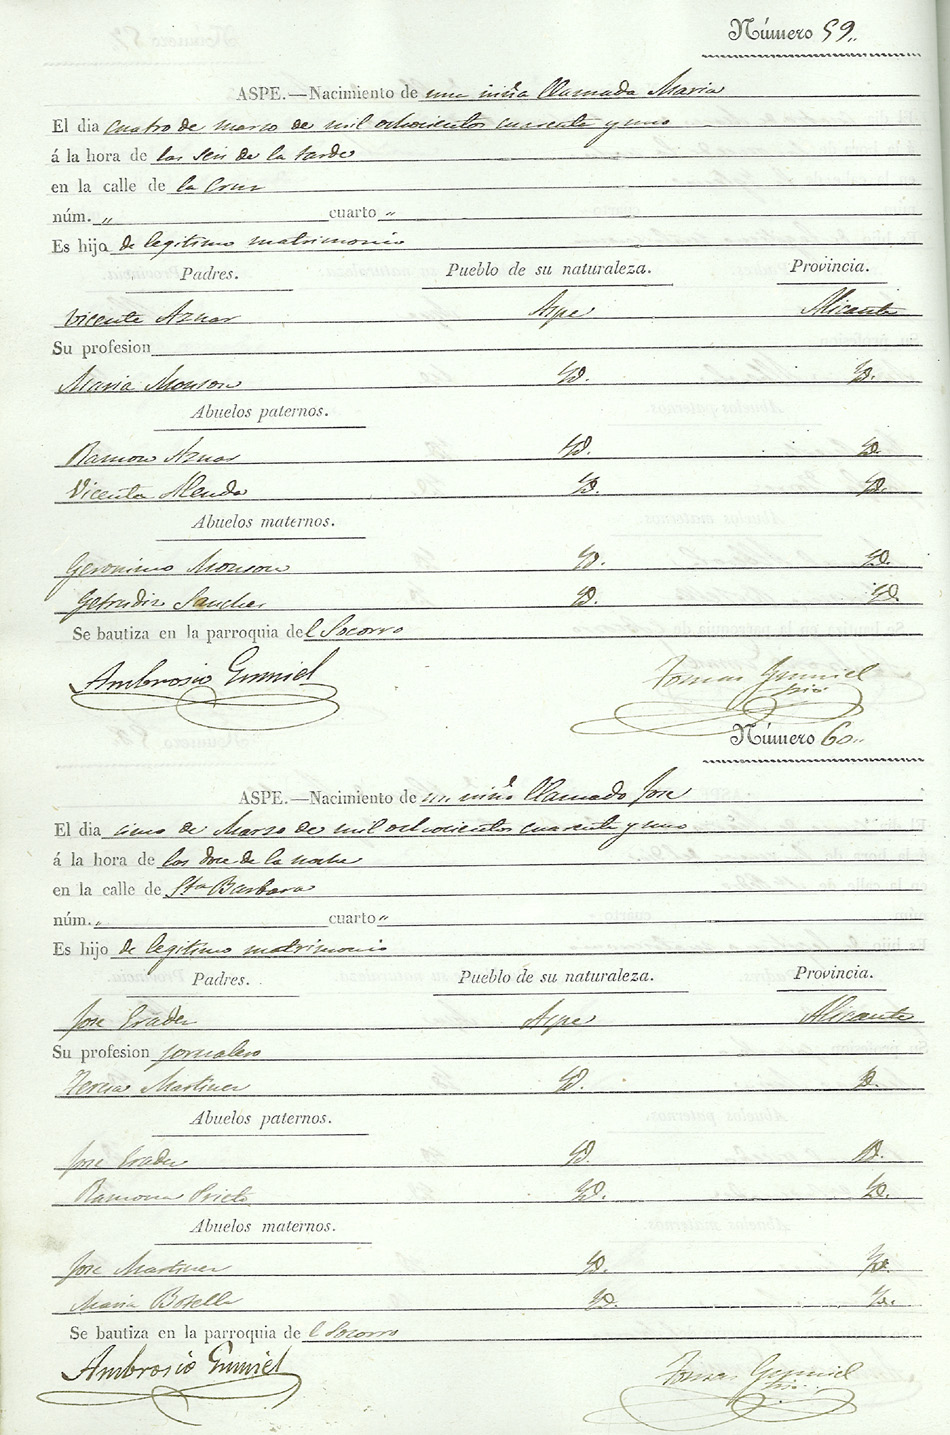 Número 59.
ASPE.—Nacimiento de una niña llamada Maria
El dia cuatro de marzo de mil ochocientos cuarenta y uno
á la hora de las seis de la tarde
en la calle de la Cruz
núm. „ cuarto „
Es hijo de legitimo matrimonio
Padres. Pueblo de su naturaleza. Provincia.
Vicente Aznar Aspe Alicante
Su profesion
Maria Monzon Yd. Yd.
Abuelos paternos.
Ramon Aznar Yd. Yd.
Vicenta Alenda Yd. Yd.
Abuelos maternos.
Geronimo Monzon Yd. Yd.
Getrudis Sanchez Yd. Yd.
Se bautiza en la parroquia del Socorro
Ambrosio Gumiel Tomas Gumiel
Número 60..
ASPE.—Nacimiento de un niño llamado Jose
El dia cinco de Marzo de mil ochocientos cuarenta y uno
á la hora de las doce de la noche
en la calle de Sta Barbara
núm. „ cuarto „
Es hijo de legitimo matrimonio
Padres. Pueblo de su naturaleza. Provincia.
Jose Erades Aspe Alicante
Su profesion jornalero
Teresa Martinez Yd. Yd.
Abuelos paternos.
Jose Erades Yd. Yd.
Ramona Prieto Yd. Yd.
Abuelos maternos.
Jose Martinez Yd. Yd.
Maria Botella Yd. Yd.
Se bautiza en la parroquia de l Socorro
Ambrosio Gumiel Tomas Gumiel